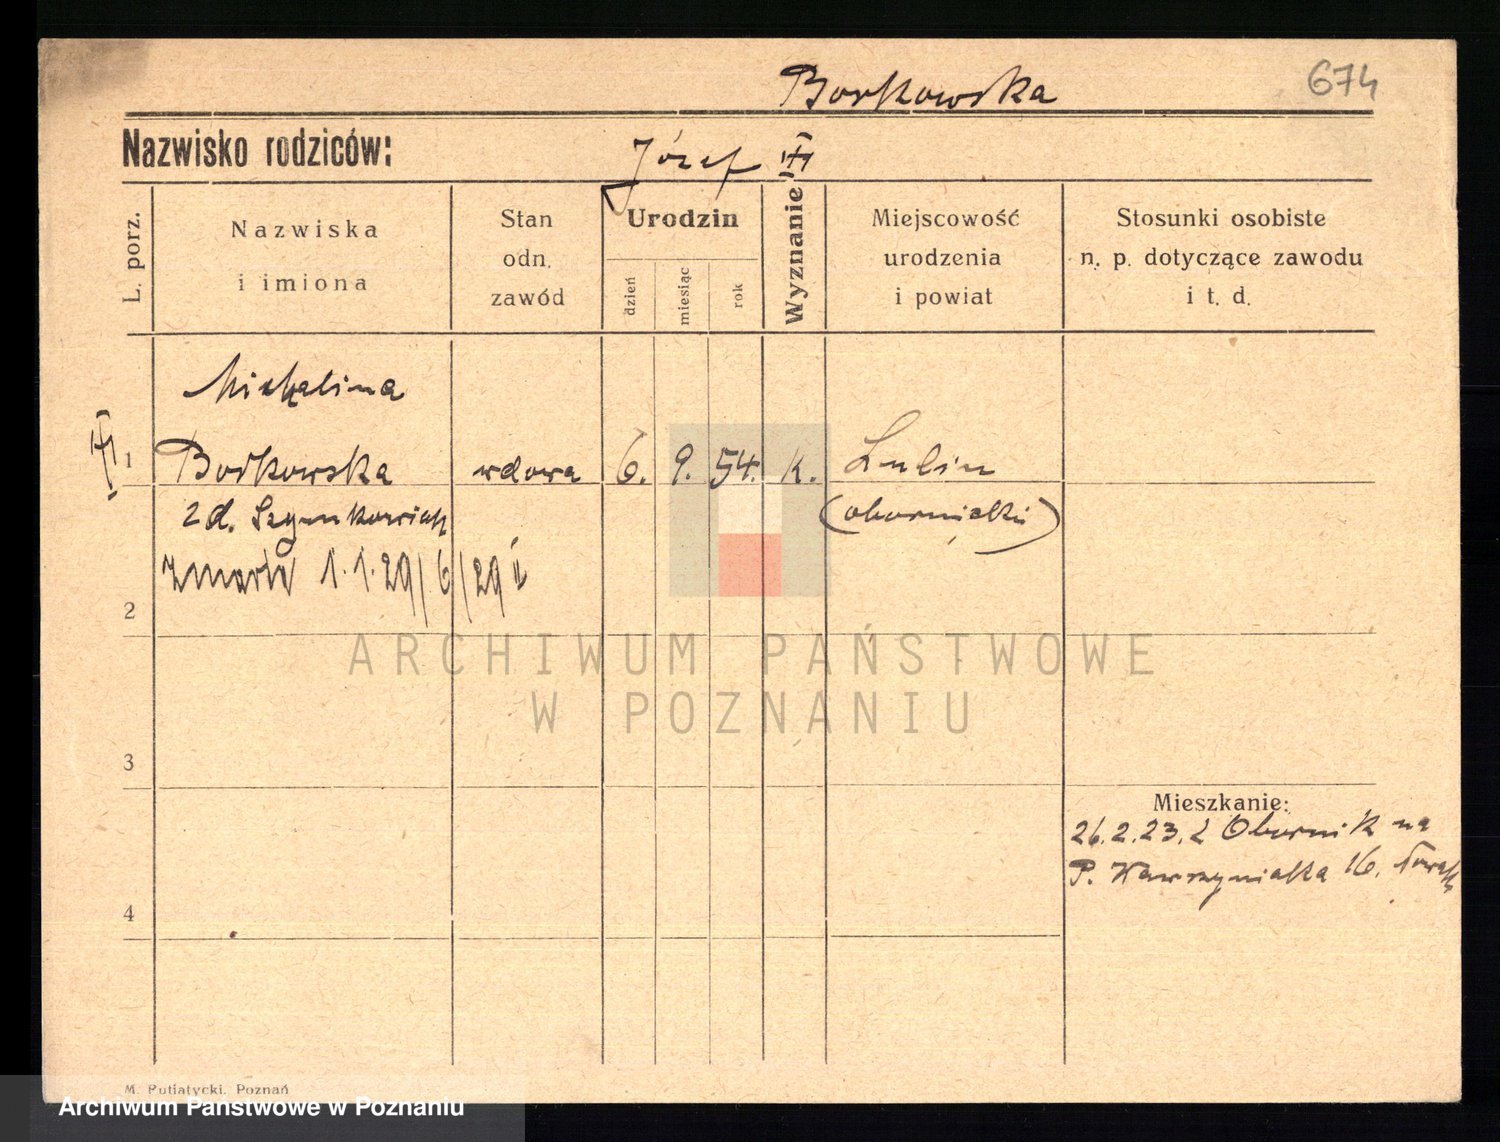 Borkowska
674
Nazwisko rodziców:
Józef
L. porz.
Nazwiska
i imiona
Stan
odn.
zawód
Urodzin
dzień
miesiąc
rok
Wyznanie
Miejscowość
urodzenia
i powiat
Stosunki osobiste
n. p. dotyczące zawodu
i t. d.
Michalina
1 Borkowska wdowa 6. 9. 54. k.
zd. Szymkowiak (obornicki)
zmarła 1.1.29/6/29
2
ARCHIWUM PAŃSTWOWE
W POZNANIU
3
Mieszkanie:
26.2.23. z Obornik na
P. Wawrzyniaka 16.
4
M. Putiatycki, Poznań
Archiwum Państwowe w Poznaniu